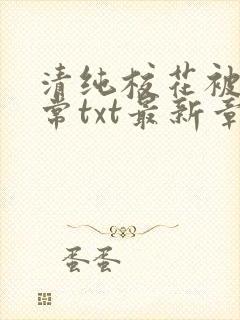 清纯校花被
常txt最新章
蛋蛋